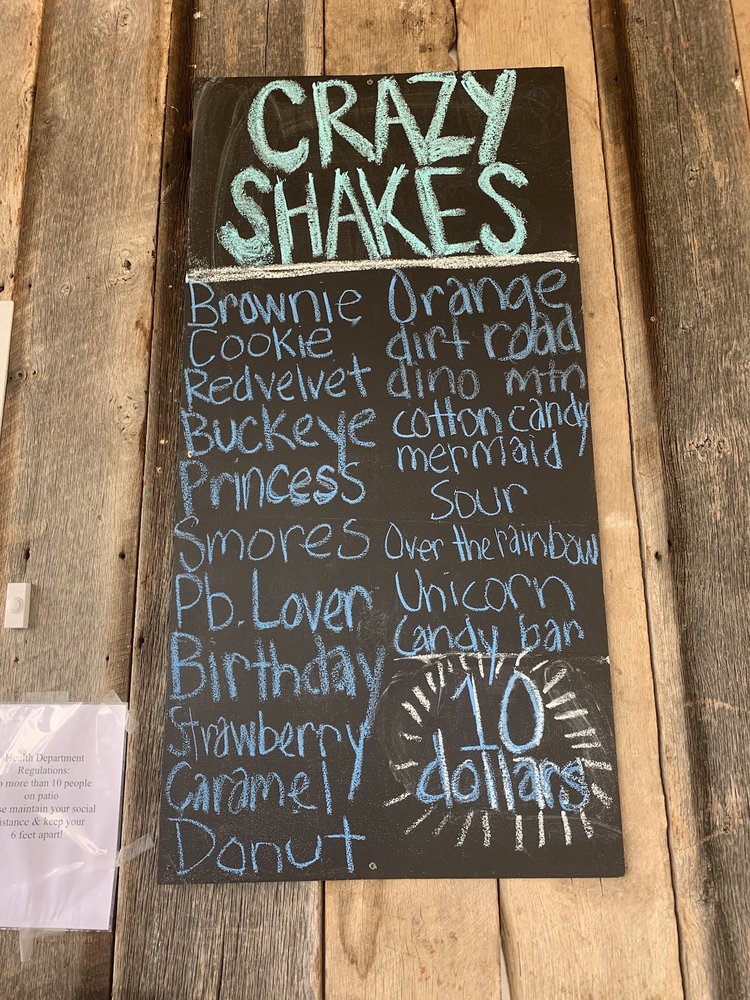 CRAZY
SHAKES
Brownie
Cookie
Redvelvet
Buckeye
Princess
Smores
Pb. Lover
Birthday
Strawberry
Caramel
Donut
Orange
dirt road
dino mtn
cotton candy
mermaid
Sour
Over the rainbow
Unicorn
Candy bar
10
dollars
Health Department
Regulations:
more than 10 people
on patio
maintain your social
& keep your
6 feet apart!